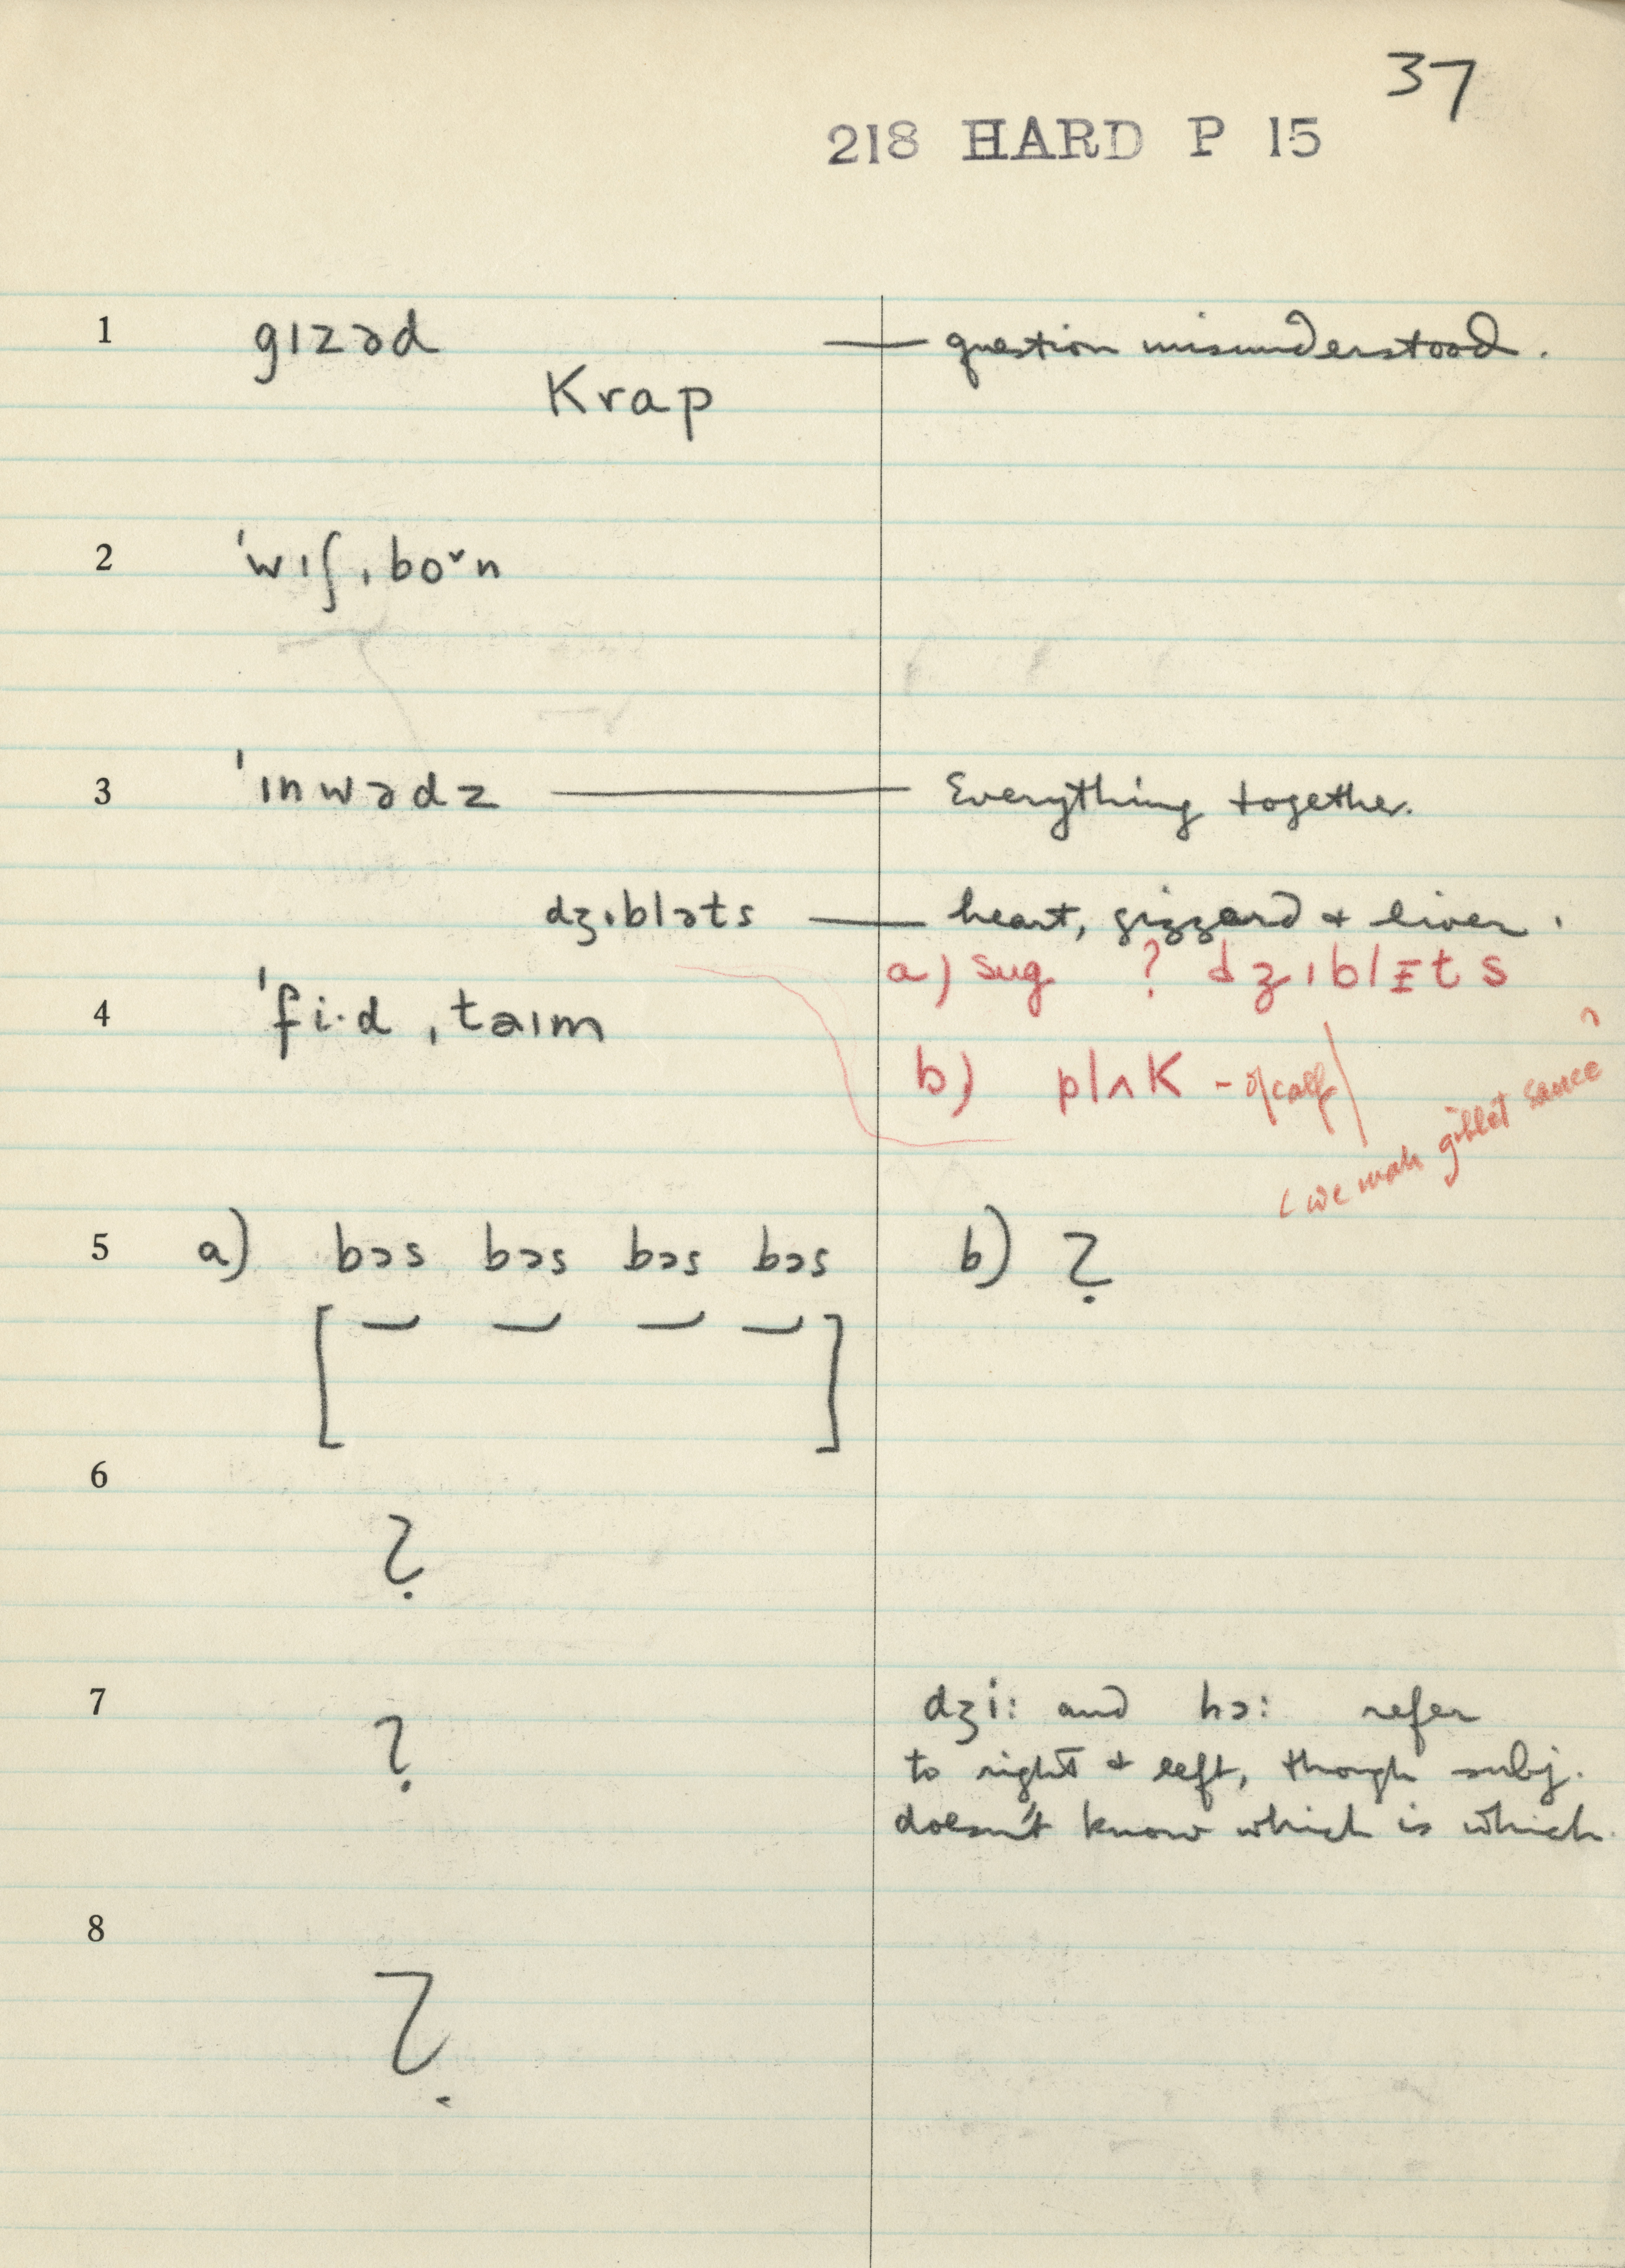 37
218 HARD P 15
1 gɪzəd — question misunderstood.
krap
2 ˈwɪʃˌboˇn
3 ˈɪnwədz — Everything together.
dʒɪbləts — heart, gizzard & liver.
a) sug ? dʒɪblɪts
4 ˈfi·dˌtaɪm
b) plʌk - of calf
(we make giblet sauce)
5 a) bɔs bɔs bɔs bɔs b) ?
[ ]
6
?
7 ? dʒi: and hɔ: refer
to right & left, though subj.
doesn't know which is which.
8
?